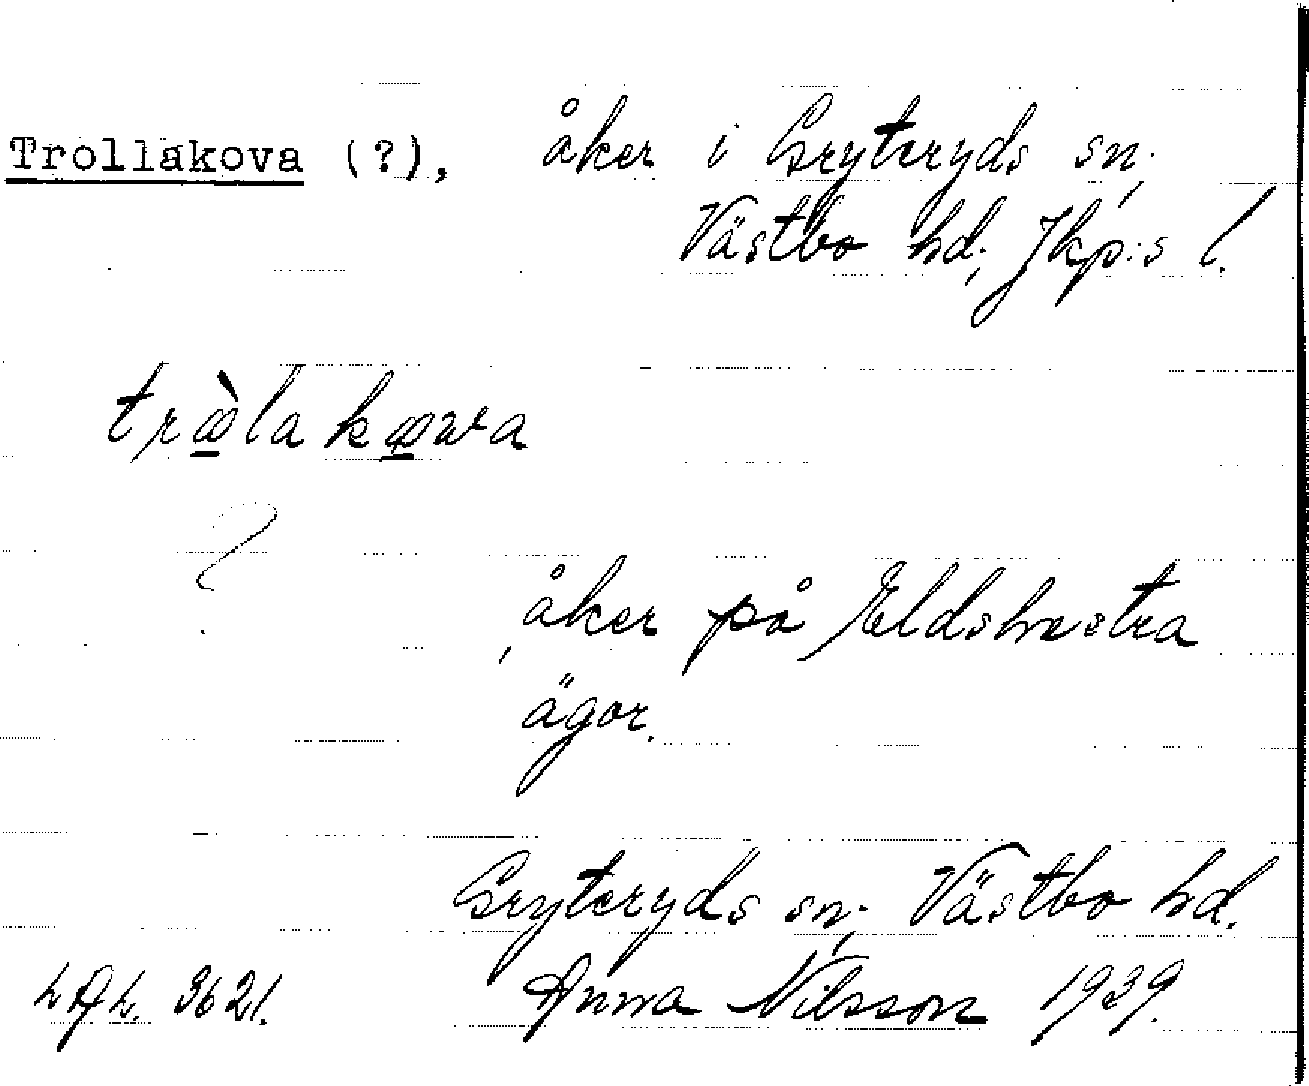 Trollakova (?), åker i Gryteryds sn;
Västbo hd; Jkp:s l.
træ̀la kæva
?
åker på Eldshestra
ägor.
Gryteryds sn; Västbo hd.
LAL. 3621. Anna Nilsson 1939.